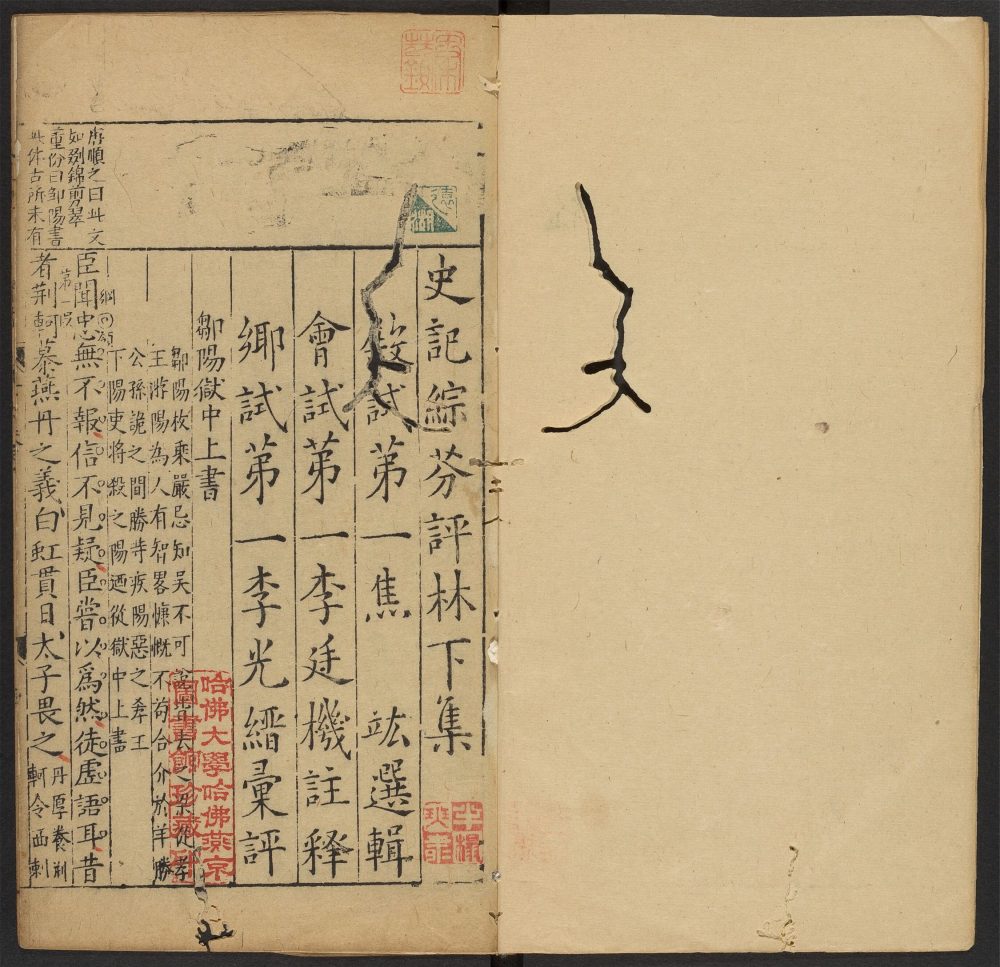 史記綜芬評林下集
殿試第一焦 竑選輯
會試第一李廷機註釋
鄉試第一李光縉彙評
鄒陽獄中上書
鄒陽枚乘嚴忌知吳不可說皆去之梁從孝
王游陽為人有智畧慷慨不苟合介於羊勝
公孫詭之間勝等疾陽惡之孝王
下陽吏將殺之陽迺從獄中上書
臣聞忠無不報信不見疑臣嘗以爲然徒虛語耳昔
者荊軻慕燕丹之義白虹貫日太子畏之
丹厚養荊
軻令西刺
第一段
唐順之曰此文
如剪錦剪翠
董份曰鄒陽書
此体古所未有
哈佛大學哈佛燕京
圖書館珍藏印